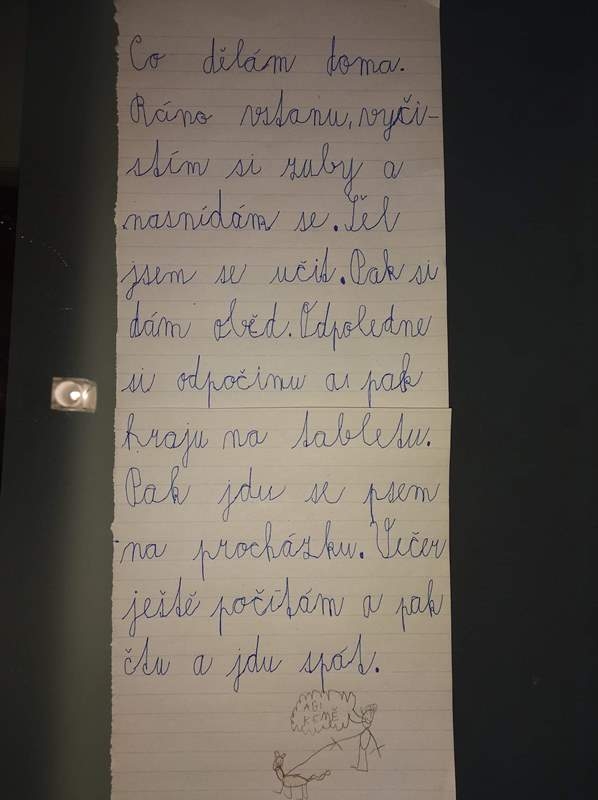 Co dělám doma.
Ráno vstanu, vyči-
stím si zuby a
nasnídám se. Šel
jsem se učit. Pak si
dám oběd. Odpoledne
si odpočinu a pak
hraju na tabletu.
Pak jdu se psem
na procházku. Večer
ještě počítám a pak
čtu a jdu spát.